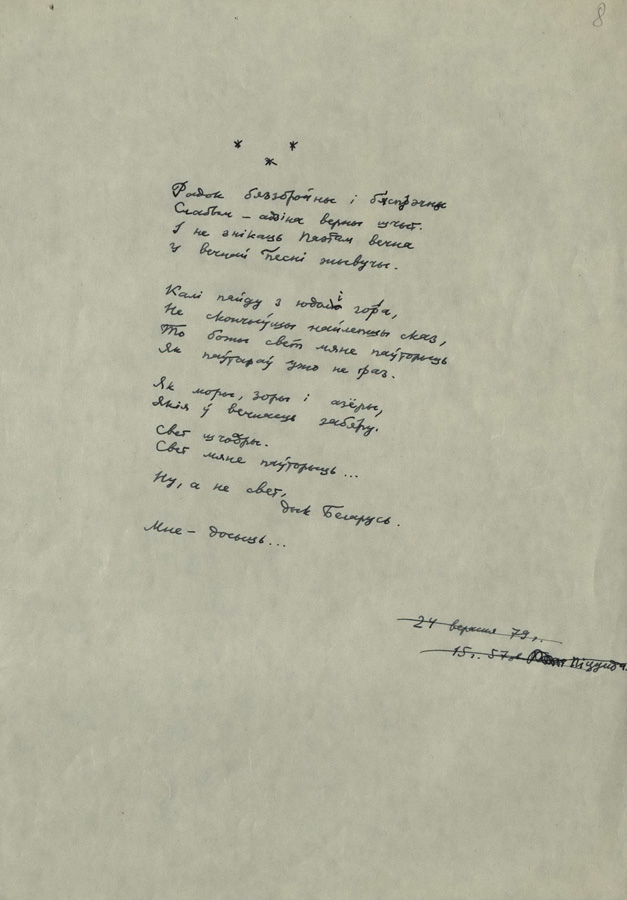 8
* * *
Радок бяззбройны і бяспрэчны
Слабым – адзіна верны шчыт.
І не знікаць паэтам вечна
У вечнай песні жывучы.
Калі пайду з юдолі гора,
Не скончыўшы найлепшы сказ,
То божы свет мяне паўторыць
Як паўтараў ужо не раз.
Як моры, зоры і азёры,
Якія ў вечнасць забяру.
Свет шчодры.
Свет мяне паўторыць...
Ну, а не свет,
дык Беларусь.
Мне – досыць...
24 верасня 79 г.
15 г. 57 Піцунда